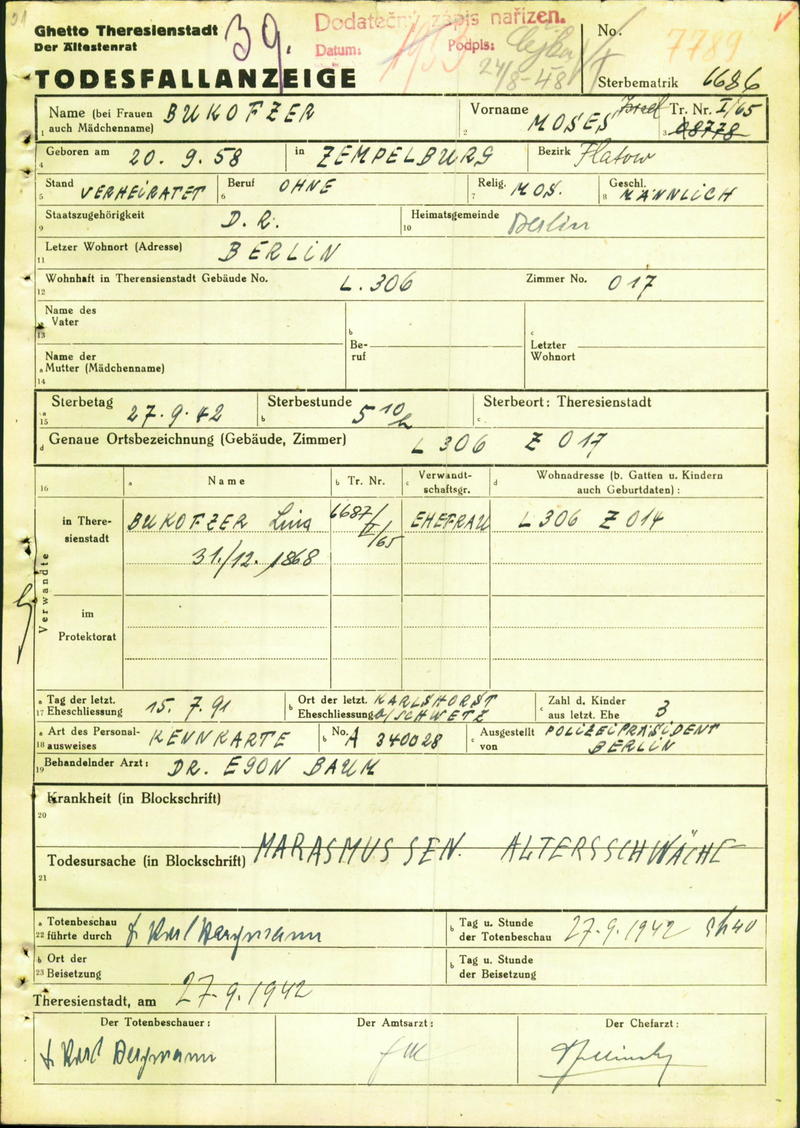 Ghetto Theresienstadt
Der Ältestenrat
39.
Dodatečný zápis nařízen.
Datum: Podpis:
24/8-48
No. 7789
TODESFALLANZEIGE
Sterbematrik 6686
1 Name (bei Frauen auch Mädchenname) BUKOFZER
2 Vorname MOSES Israel
3 Tr. Nr. I/65 08778
4 Geboren am 20. 9. 58 in ZEMPELBURG Bezirk Flatow
5 Stand VERHEIRATET 6 Beruf OHNE 7 Relig. MOS. 8 Geschl. MÄNNLICH
9 Staatszugehörigkeit D. R. 10 Heimatsgemeinde Berlin
11 Letzer Wohnort (Adresse) BERLIN
12 Wohnhaft in Therensienstadt Gebäude No. L. 306 Zimmer No. 017
13 Name des Vater
a 14 Name der Mutter (Mädchenname)
b Beruf
c Letzter Wohnort
a 15 Sterbetag 27. 9. 42 b Sterbestunde 5 10 h c Sterbeort: Theresienstadt
d Genaue Ortsbezeichnung (Gebäude, Zimmer) L 306 Z 017
16 a Name b Tr. Nr. c Verwandtschaftsgr. d Wohnadresse (b. Gatten u. Kindern auch Geburtdaten) :
Verwandte
in Theresienstadt BUKOFZER Lina 6687/I/65 EHEFRAU L 306 Z 014
31./12. 1868
im Protektorat
a 17 Tag der letzt. Eheschliessung 15. 7. 91 b Ort der letzt. Eheschliessung KARLSHORST / SCHWETZ c Zahl d. Kinder aus letzt. Ehe 3
a 18 Art des Personalausweises KENNKARTE b No. A 340028 c Ausgestellt von POLIZEIPRÄSIDENT BERLIN
19 Behandelnder Arzt: DR. EGON BAUM
20 Krankheit (in Blockschrift)
21 Todesursache (in Blockschrift) MARASMUS SEN. ALTERSSCHWÄCHE
a 22 Totenbeschau führte durch Karl Bergmann b Tag u. Stunde der Totenbeschau 27. 9. 1942 8h40
b 23 Ort der Beisetzung b Tag u. Stunde der Beisetzung
Theresienstadt, am 27. 9. 1942
Der Totenbeschauer: Der Amtsarzt: Der Chefarzt:
Karl Bergmann